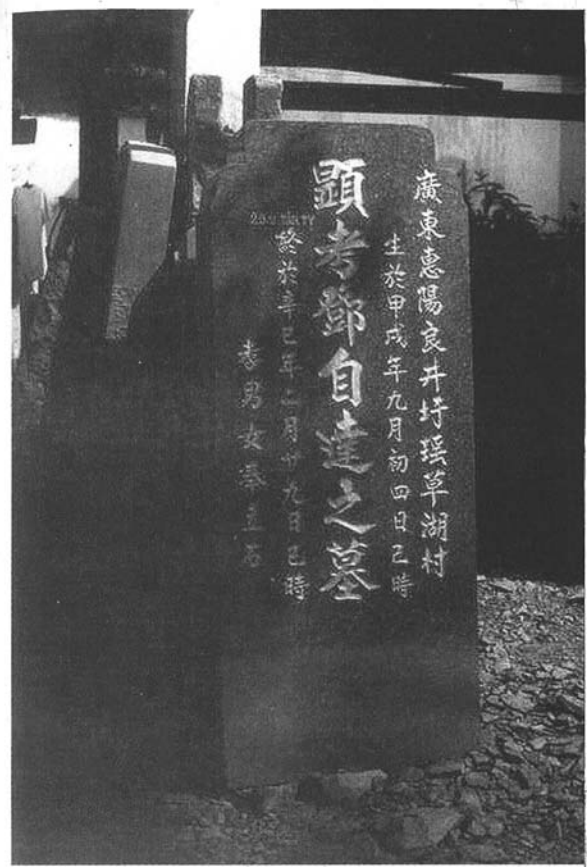 廣東惠陽良井圩瑶草湖村
生於甲戌年九月初四日巳時
顯考鄧自達之墓
終於辛巳年二月廿九日巳時
孝男女奉立石